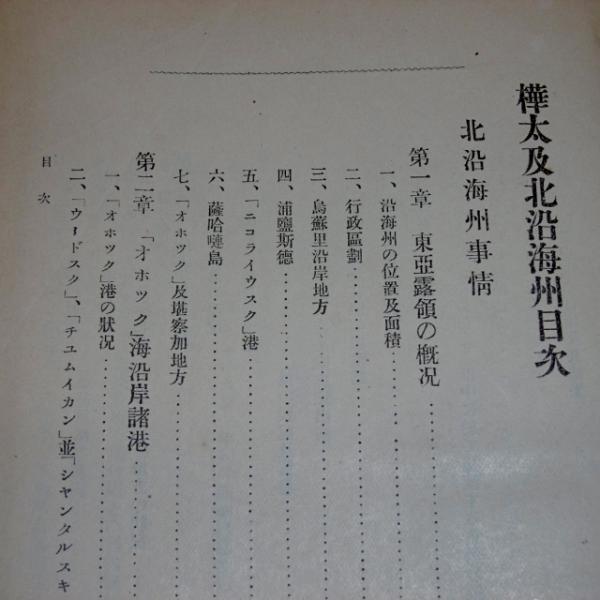 樺太及北沿海州目次
北沿海州事情
第一章 東亞露領の概況
一、沿海州の位置及面積
二、行政區劃
三、烏蘇里沿岸地方
四、浦鹽斯德
五、「ニコライウスク」港
六、薩哈嗹島
七、「オホツク」及堪察加地方
第二章 「オホツク」海沿岸諸港
一、「オホツク」港の狀况
二、「ウードスク」、「チユムイカン」並「シヤンタルスキ
目次